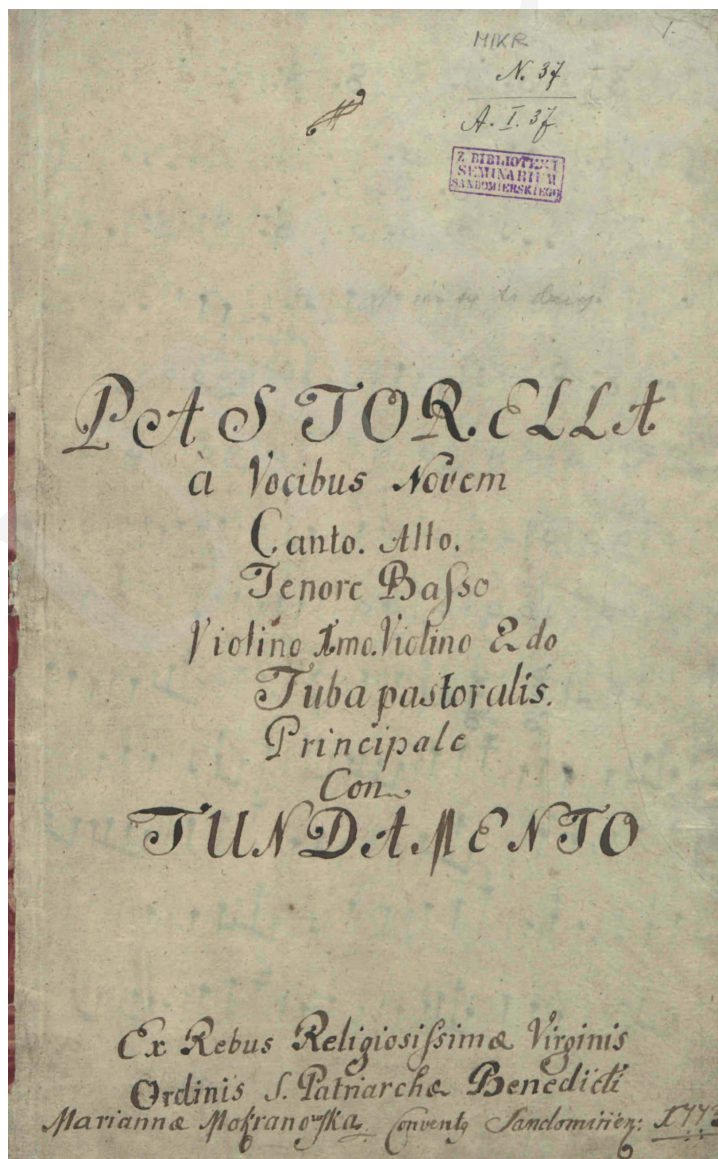 1.
MIKR
N. 37
A. I. 37.
Z BIBLIOTEKI
SEMINARIUM
SANDOMIERSKIEGO
PASTORELLA
à Vocibus Novem
Canto. Alto.
Tenore Baſso
Violino Imo. Violino 2do
Tuba pastoralis.
Principale
Con
FUNDAMENTO
Ex Rebus Religiosiſsimæ Virginis
Ordinis S. Patriarchæ Benedicti
Mariannæ Mokranowſka Conventꝯ Sandomirien: 1773